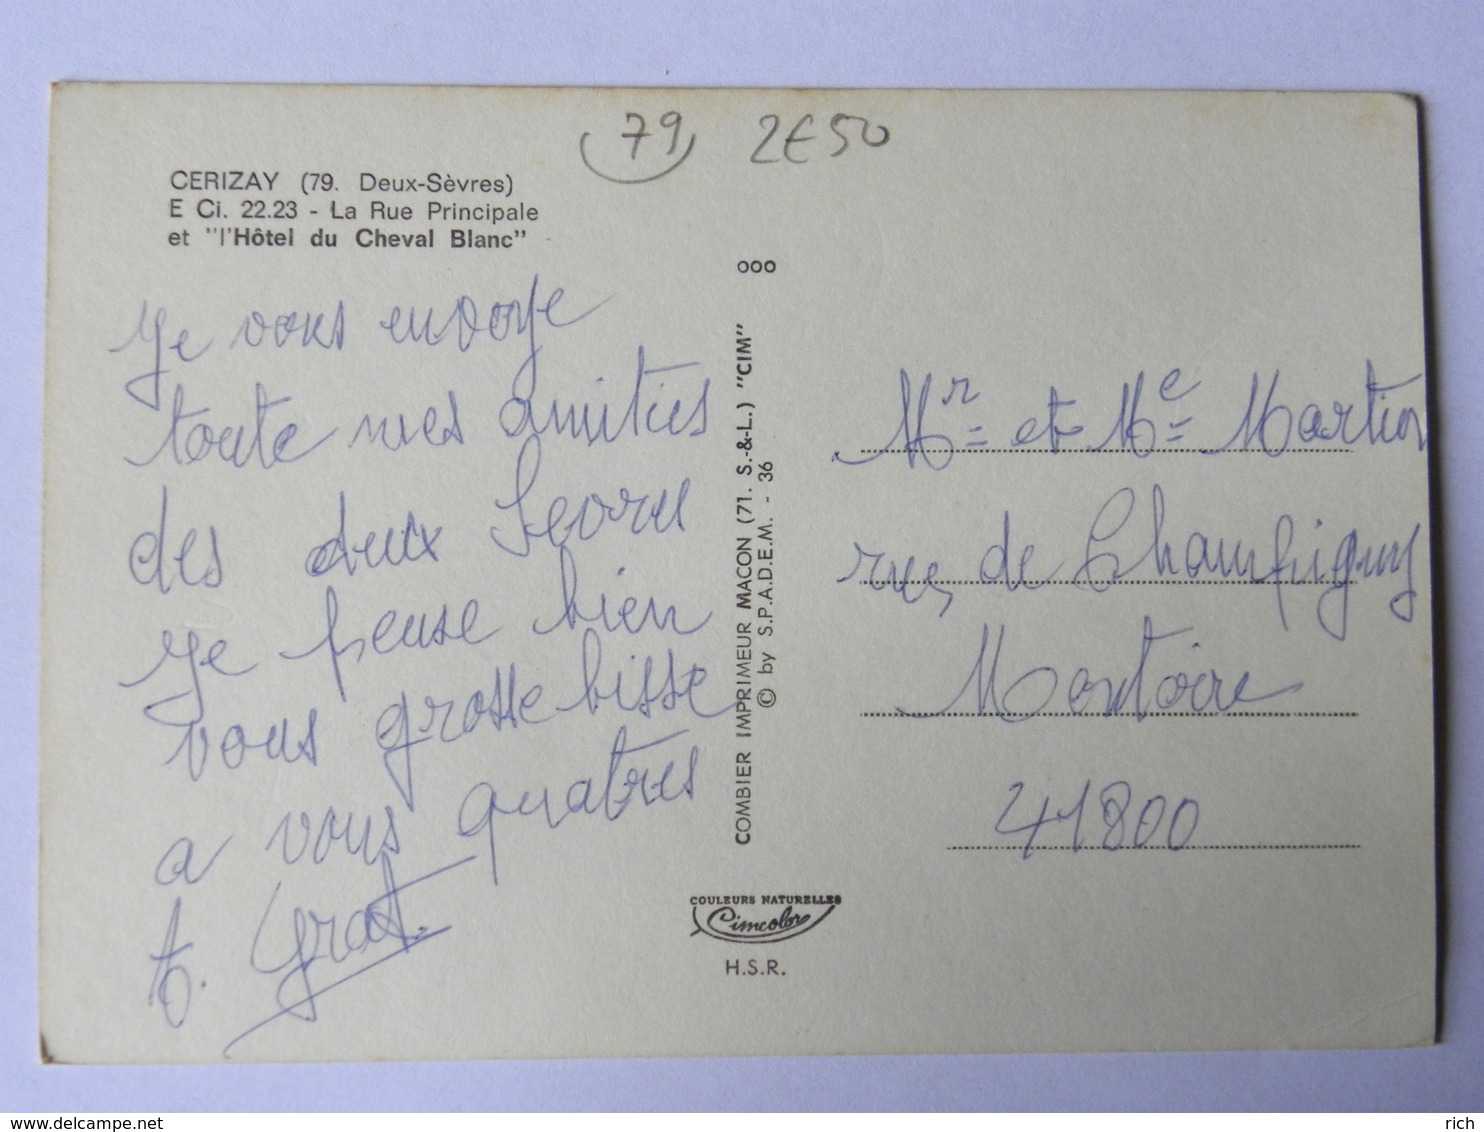 79 2E50
CERIZAY (79. Deux-Sèvres)
E Ci. 22.23 - La Rue Principale
et "l'Hôtel du Cheval Blanc"
Je vous envoye
toute mes amities
des deux Sevres
Je pense bien
vous grosse bisse
a vous quatres
ooo
COMBIER IMPRIMEUR MACON (71. S.-&-L.) "CIM"
© by S.P.A.D.E.M. - 36
COULEURS NATURELLES
Cimcolor
H.S.R.
Mr et Me Martion
rue de Champigny
Montoire
41800
delcampe.net
rich